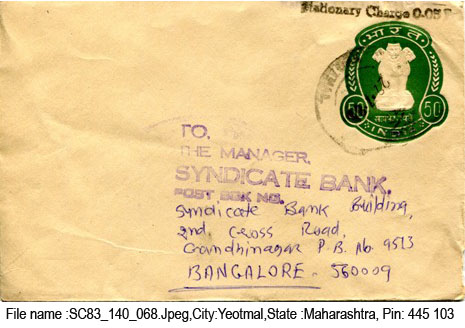 Stationary Charge 0.05 P
भारत
50 50
सत्यमेव जयते
INDIA
TO,
THE MANAGER,
SYNDICATE BANK,
POST BOX NO.
Syndicate Bank Building,
2nd, Cross Road,
Gandhinagar P.B. No. 9513
BANGALORE - 560009
File name :SC83_140_068.Jpeg,City:Yeotmal,State :Maharashtra, Pin: 445 103